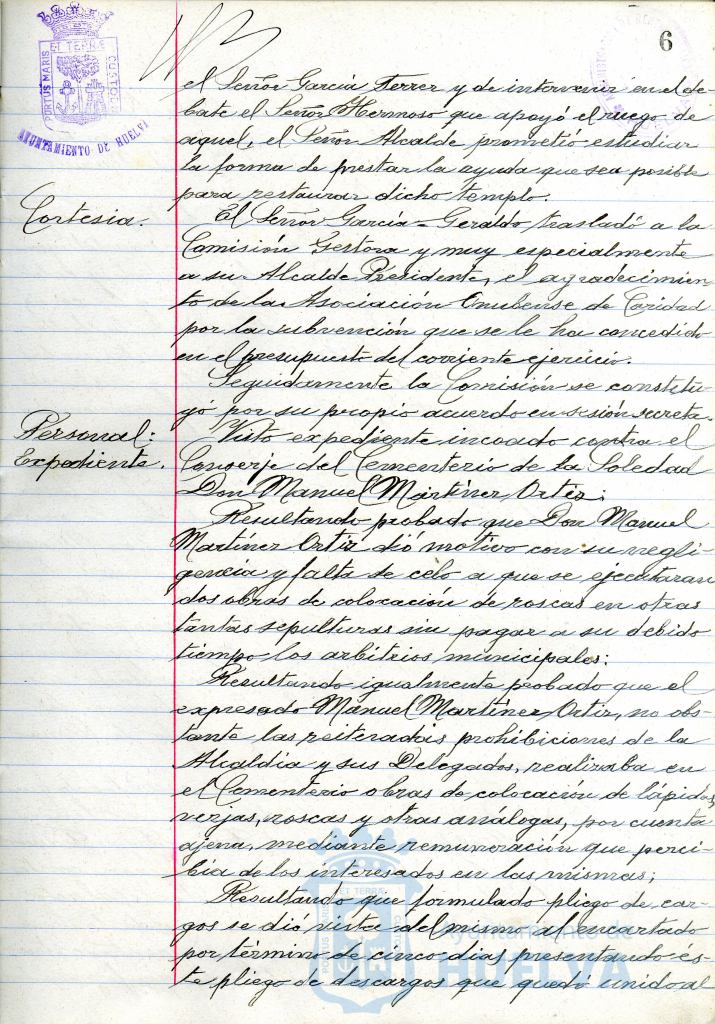 6
PORTUS MARIS
ET TERRÆ
CUSTODIA
AYUNTAMIENTO DE HUELVA
el Señor García Ferrer y de intervenir en el de-
bate el Señor Hermoso que apoyó el ruego de
aquel, el Señor Alcalde prometió estudiar
la forma de prestar la ayuda que sea posible
para restaurar dicho templo.
Cortesia.
El Señor García-Geraldo trasladó a la
Comisión Gestora y muy especialmente
a su Alcalde Presidente, el agradecimien-
to de la Asociación Onubense de Caridad
por la subvención que se le ha concedido
en el presupuesto del corriente ejercicio.
Seguidamente la Comisión se constitu-
yó por su propio acuerdo en sesión secreta.
Personal:
Expediente.
Visto expediente incoado contra el
Conserje del Cementerio de la Soledad
Don Manuel Martínez Ortiz;
Resultando probado que Don Manuel
Martínez Ortiz dió motivo con su negli-
gencia y falta de celo a que se ejecutaran
dos obras de colocación de roscas en otras
tantas sepulturas sin pagar a su debido
tiempo los arbitrios municipales;
Resultando igualmente probado que el
expresado Manuel Martínez Ortiz, no obs-
tante las reiteradas prohibiciones de la
Alcaldía y sus Delegados, realizaba en
el Cementerio obras de colocación de lápidas,
verjas, roscas y otras análogas, por cuenta
ajena, mediante remuneración que perci-
bía de los interesados en las mismas;
Resultando que formulado pliego de car-
gos se dió vista del mismo al encartado
por término de cinco días presentando és-
te pliego de descargos que quedó unido al
Ayuntamiento de
HUELVA